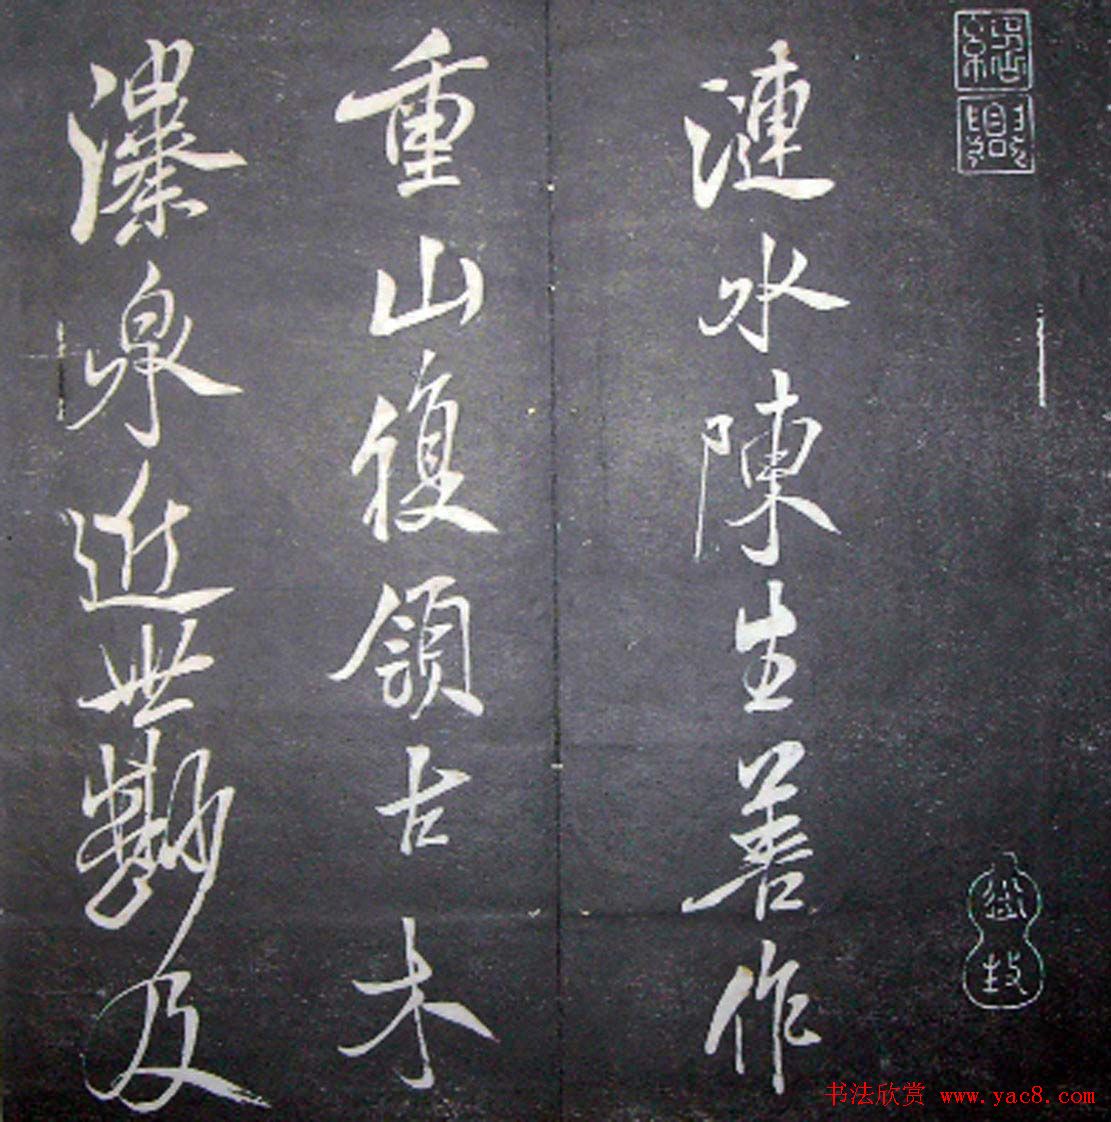 漣水陳生善作
重山復領古木
瀑泉近世尠及
书法欣赏 www.yac8.com